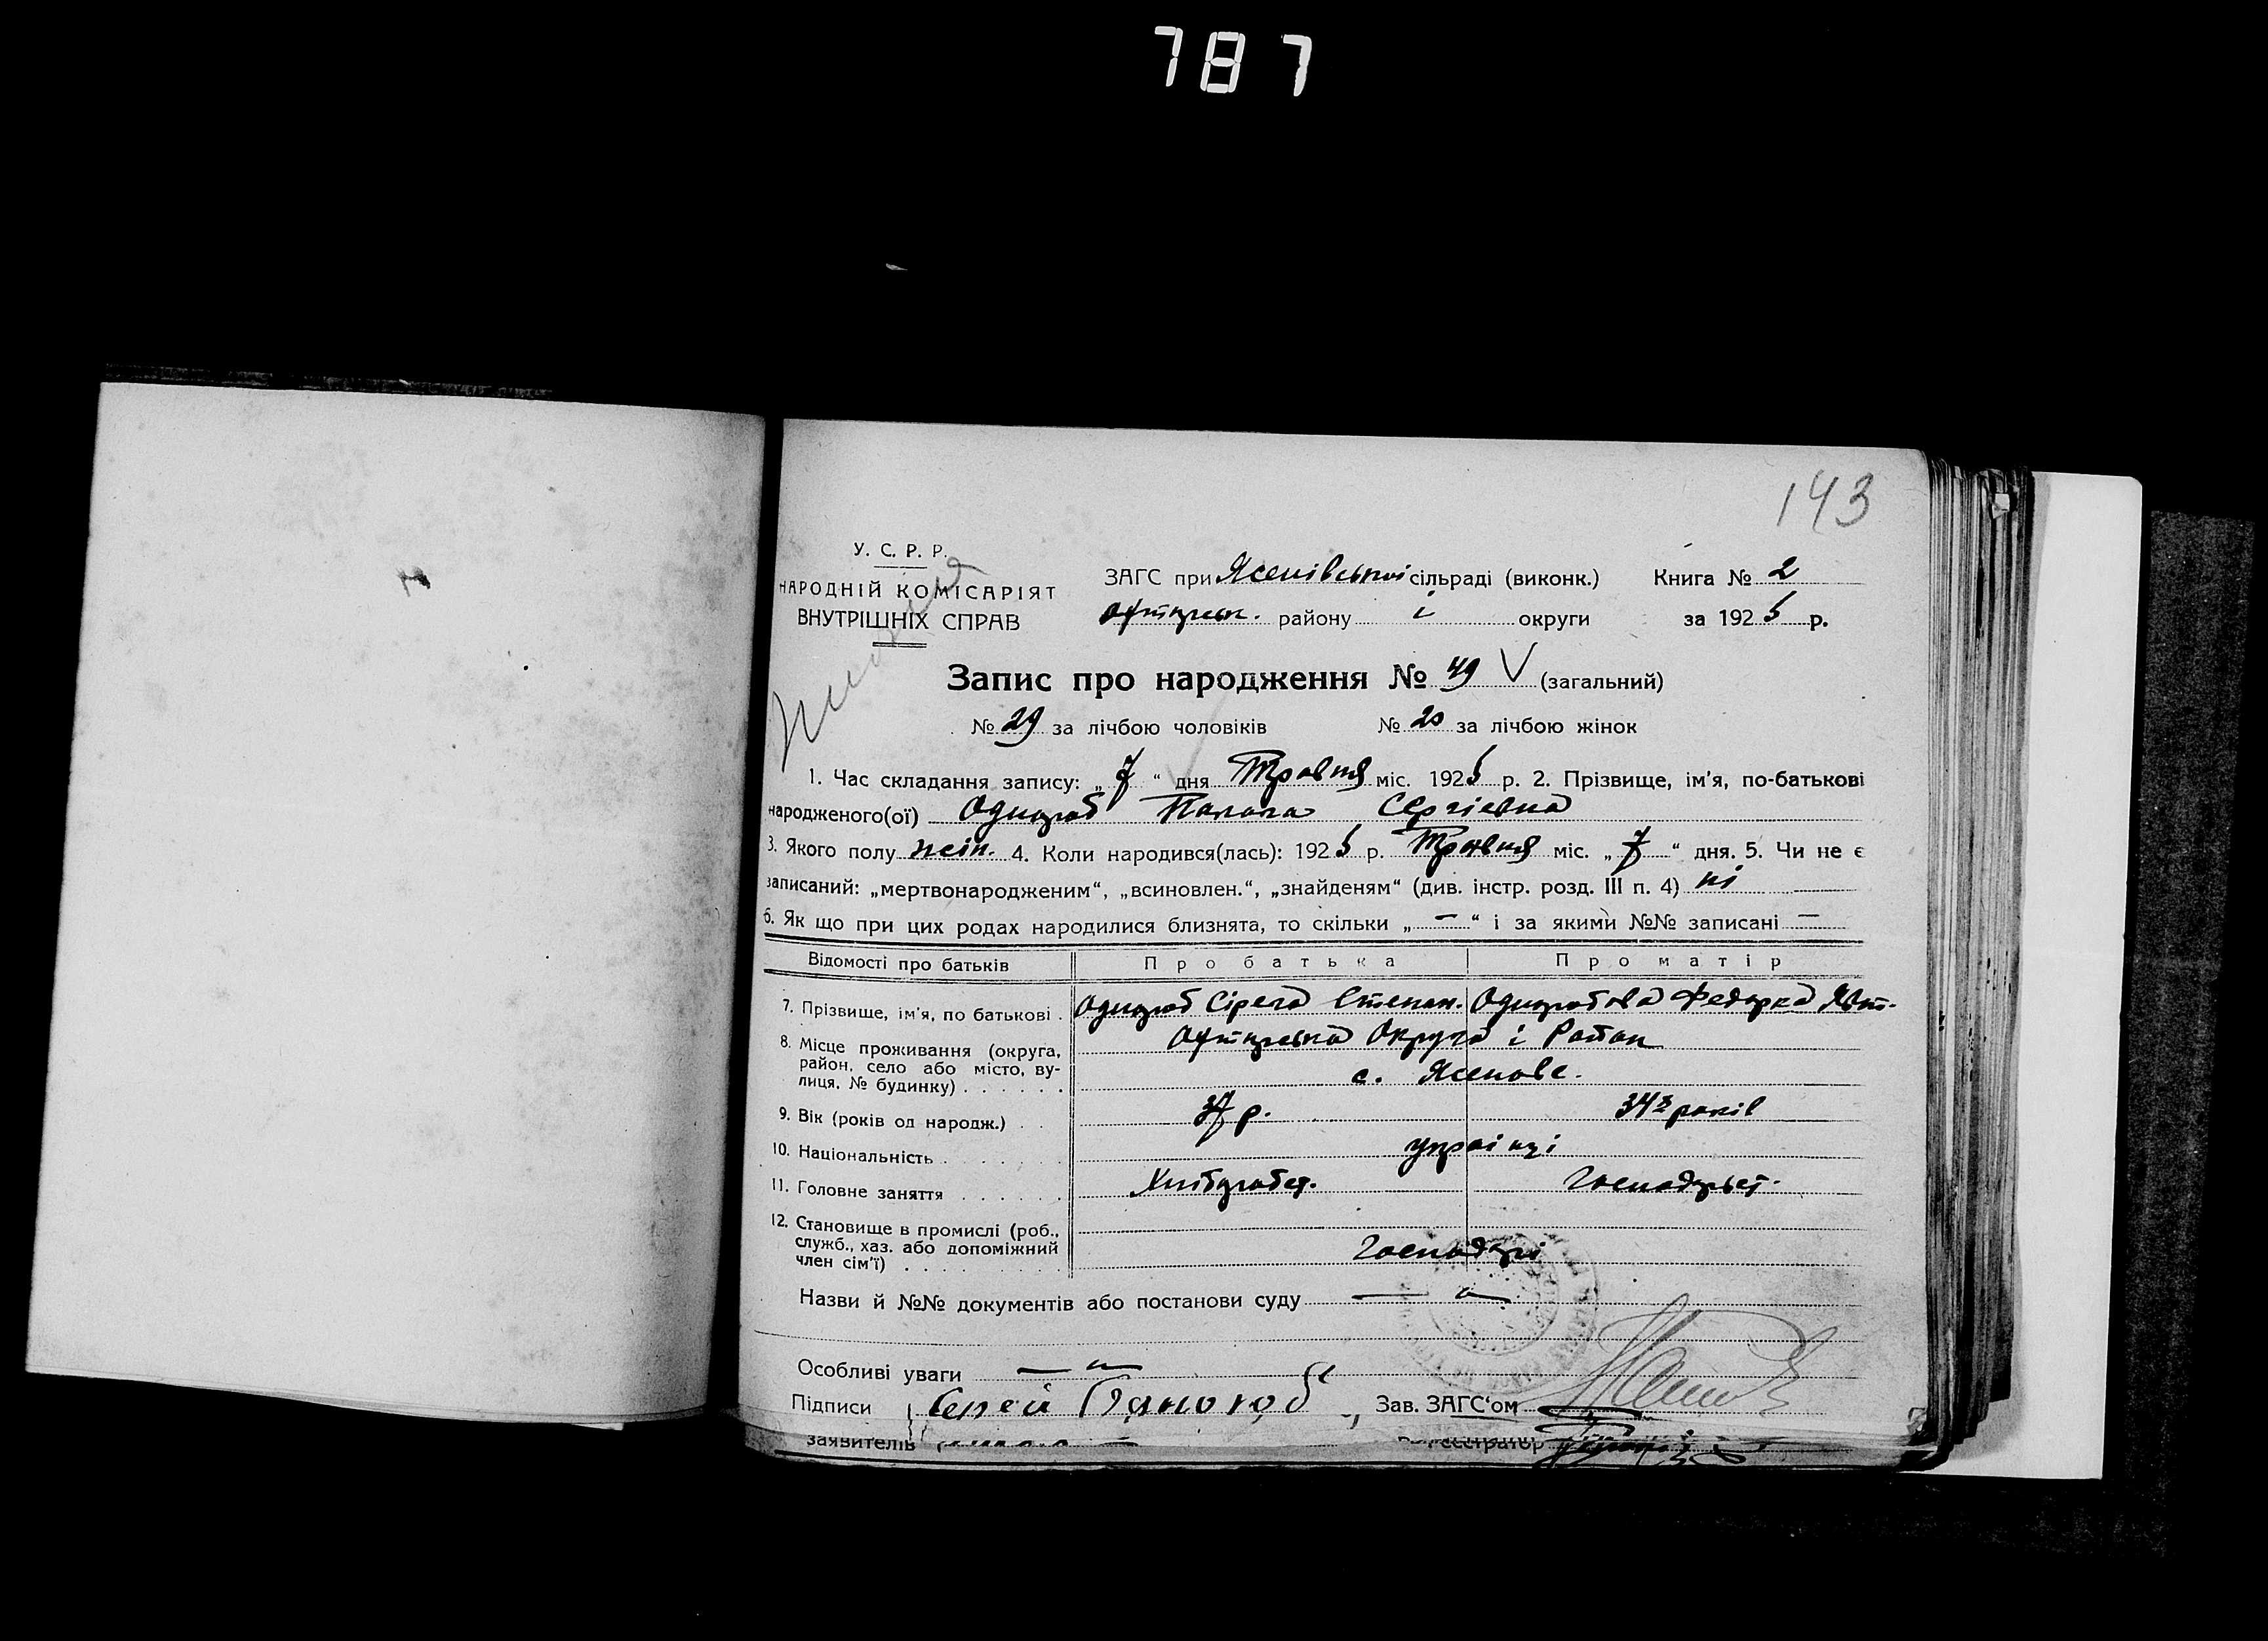 787
143
У. С. Р. Р.
НАРОДНІЙ КОМІСАРІЯТ
ВНУТРІШНІХ СПРАВ
ЗАГС при Ясенівській сільраді (виконк.) Книга № 2
району і округи за 1925 р.
Запис про народження № 49 V (загальний)
№ 29 за лічбою чоловіків № 20 за лічбою жінок
1. Час складання запису: „7“ дня Травня міс. 1925 р. 2. Прізвище, ім'я, по-батькові
народженого(ої) Сергієвна
3. Якого полу жін. 4. Коли народився(лась): 1925 р. Травня міс. „7“ дня. 5. Чи не є
записаний: „мертвонародженим“, „всиновлен.“, „знайденям“ (див. інстр. розд. III п. 4) ні
6. Як що при цих родах народилися близнята, то скільки „—“ і за якими №№ записані —
Відомості про батьків Про батька Про матір
7. Прізвище, ім'я, по батькові . Степан. Федорка
8. Місце проживання (округа, Округа і Район
район, село або місто, ву-
лиця, № будинку) . . . . . . с. Ясенове.
9. Вік (років од народж.) . . 37 р. 34 років
10. Національність . . . . . . українці
11. Головне заняття . . . . . . Хлібороб Господарст.
12. Становище в промислі (роб.,
служб., хаз. або допоміжний
член сім'ї) . . . . . . . . Господарі
Назви й №№ документів або постанови суду — „ —
Особливі уваги — „ —
Підписи Сергей Зав. ЗАГС'ом
заявителів Реєстратор